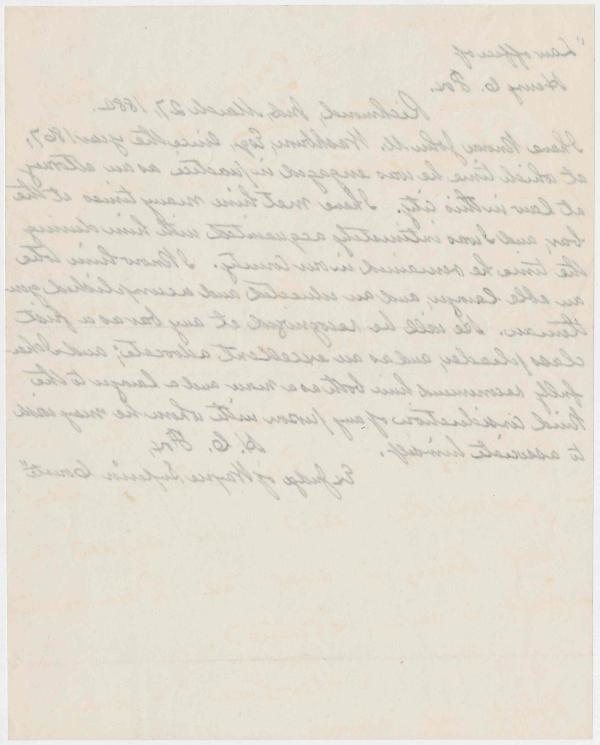 "Law office of
Henry C. Fox.
Richmond, Ind. March 27, 1882.
I have known John M. Washburn, Esq., since the year 1867,
at which time he was engaged in practice as an attorney
at law in this city. I have met him many times at the
bar, and I was intimately acquainted with him during
the time he remained in our county. I know him to be
an able lawyer, and an educated and accomplished gen
tleman. He will be recognized at any bar as a first
class pleader, and as an excellent advocate; and I cheer
fully recommend him both as a man and a lawyer to the
kind consideration of any person with whom he may wish
to associate himself. H. C. Fox,
Ex Judge of Wayne Superior Court"